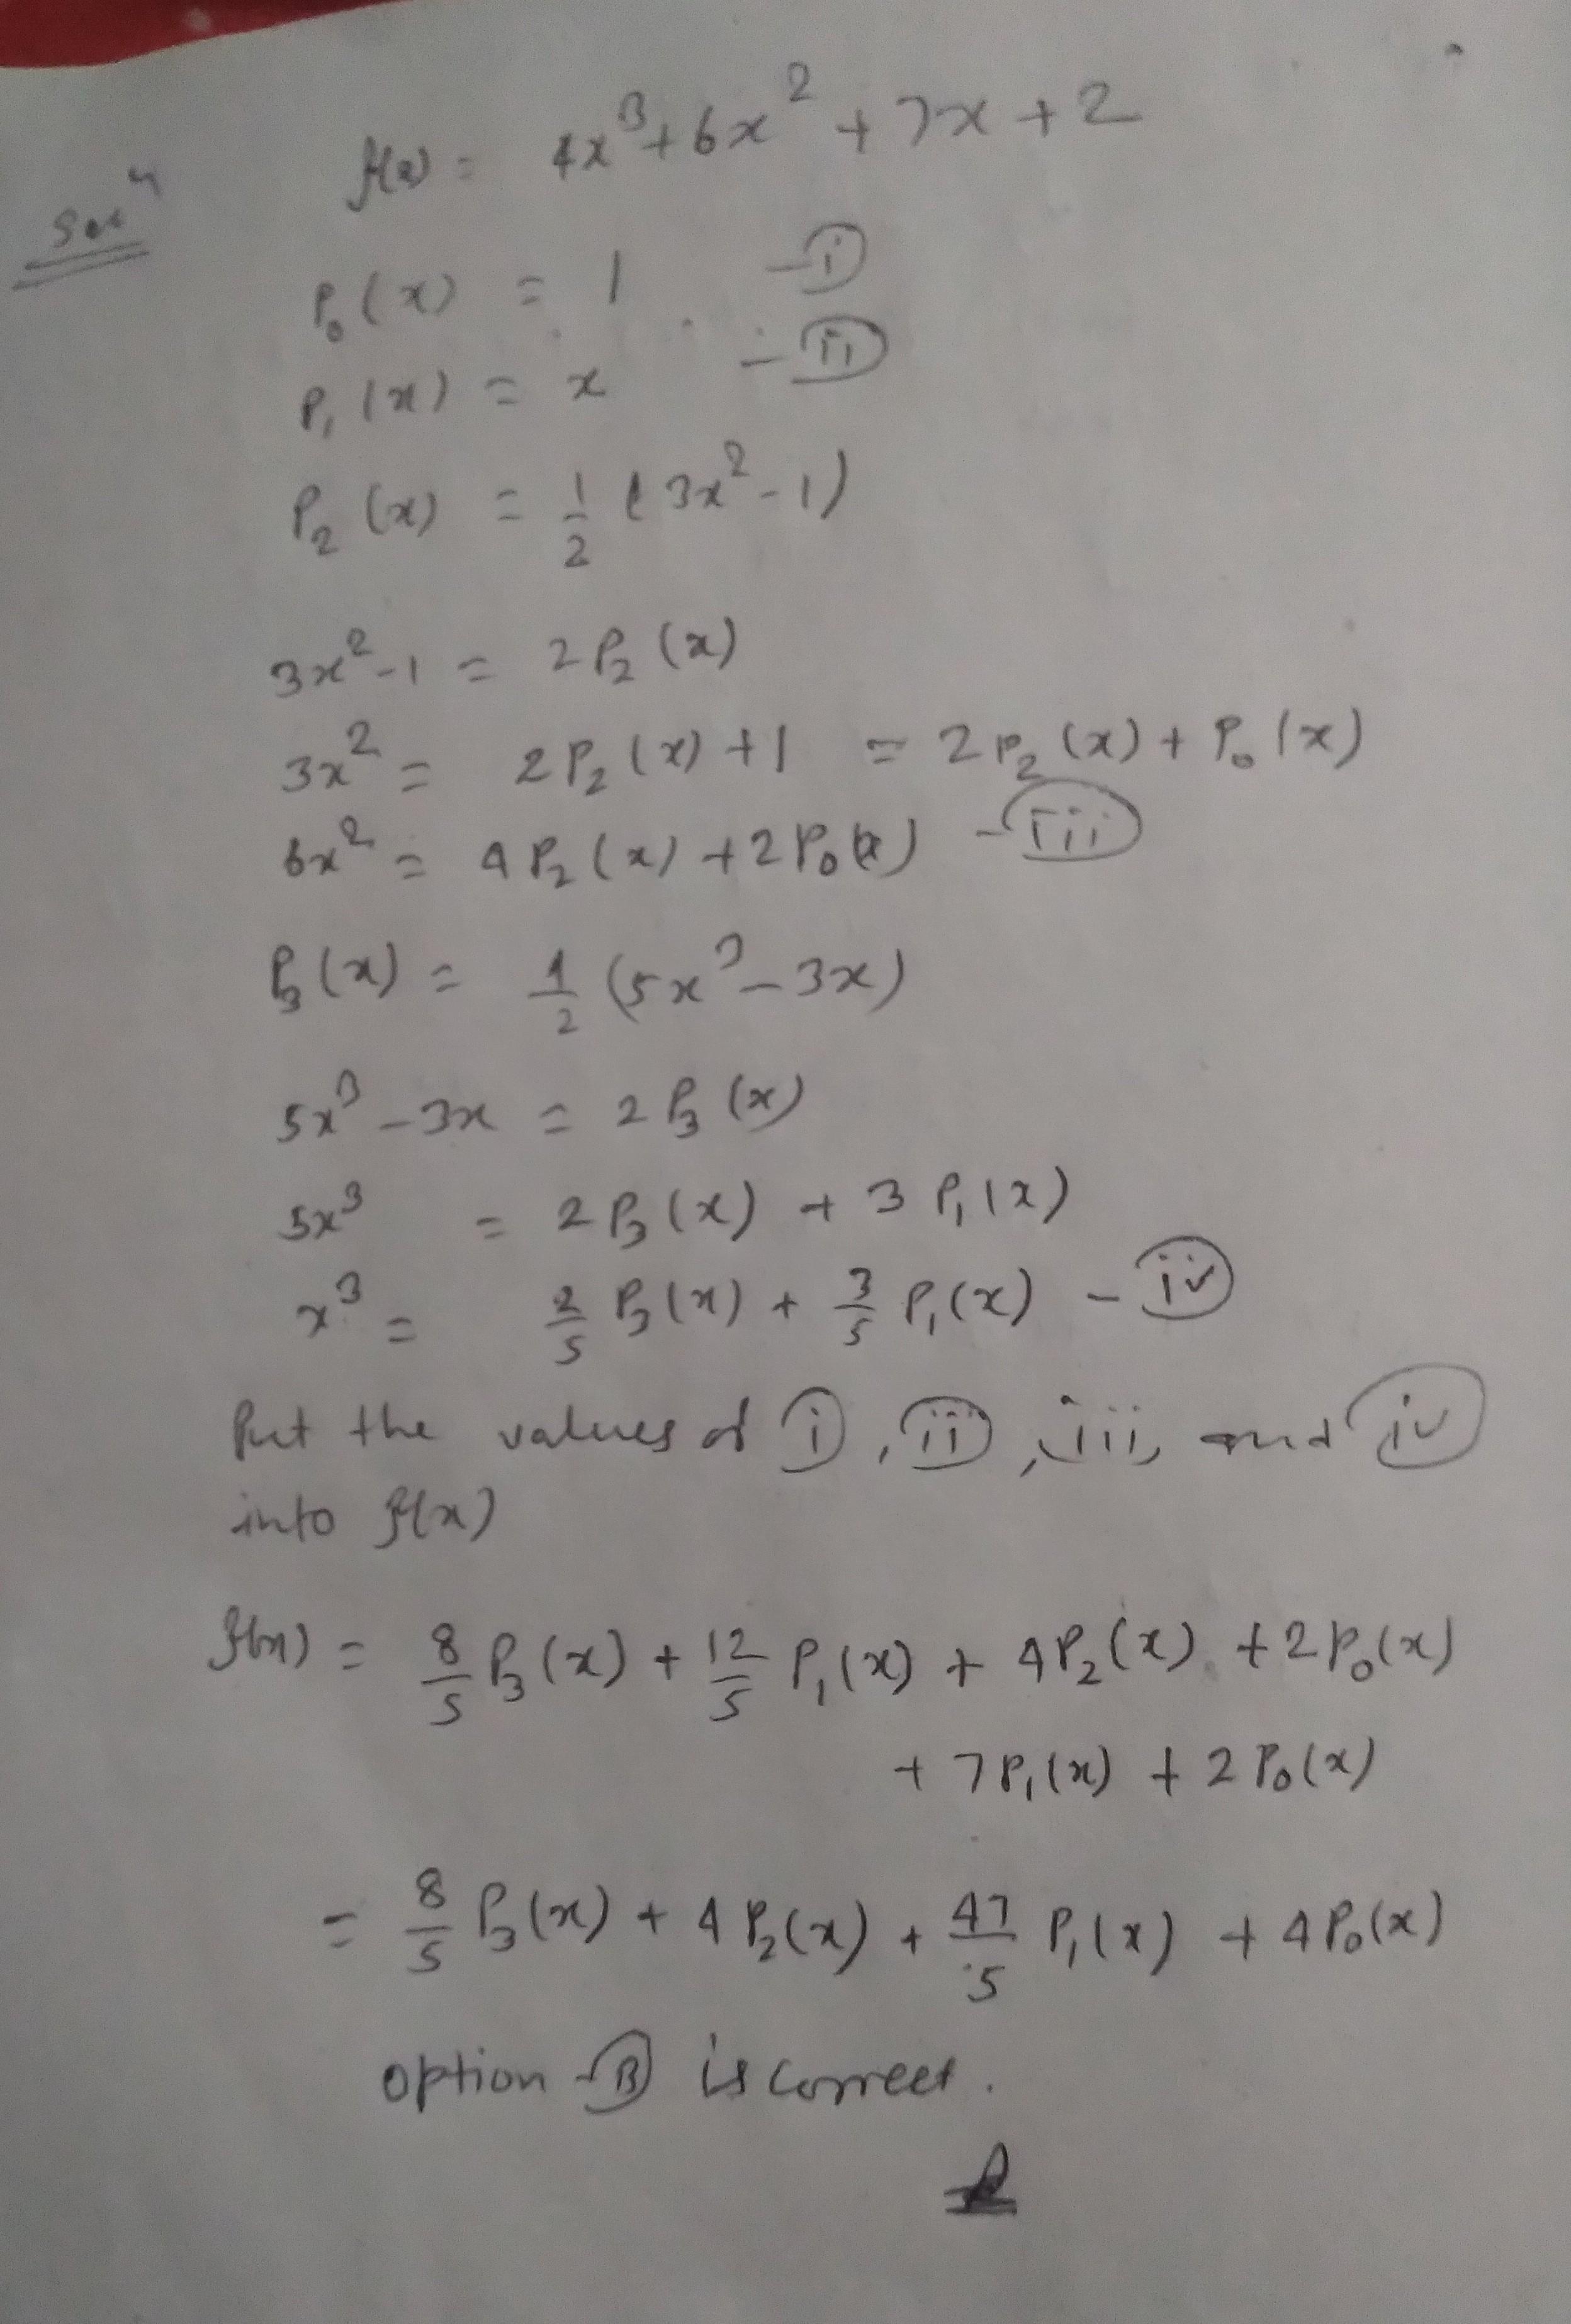 f(x) = 4x³ + 6x² + 7x + 2
Solⁿ
P₀(x) = 1 - (i)
P₁(x) = x - (ii)
P₂(x) = 1/2 (3x² - 1)
3x² - 1 = 2P₂(x)
3x² = 2P₂(x) + 1 = 2P₂(x) + P₀(x)
6x² = 4P₂(x) + 2P₀(x) - (iii)
P₃(x) = 1/2 (5x³ - 3x)
5x³ - 3x = 2P₃(x)
5x³ = 2P₃(x) + 3P₁(x)
x³ = 2/5 P₃(x) + 3/5 P₁(x) - (iv)
Put the values of (i), (ii), iii, and (iv)
into f(x)
f(x) = 8/5 P₃(x) + 12/5 P₁(x) + 4P₂(x) + 2P₀(x)
+ 7P₁(x) + 2P₀(x)
= 8/5 P₃(x) + 4P₂(x) + 47/5 P₁(x) + 4P₀(x)
option (B) is correct.